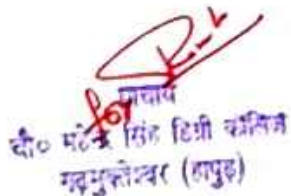 for
प्राचार्य
चौ० महेन्द्र सिंह डिग्री कॉलिज
गढ़मुक्तेश्वर (हापुड़)